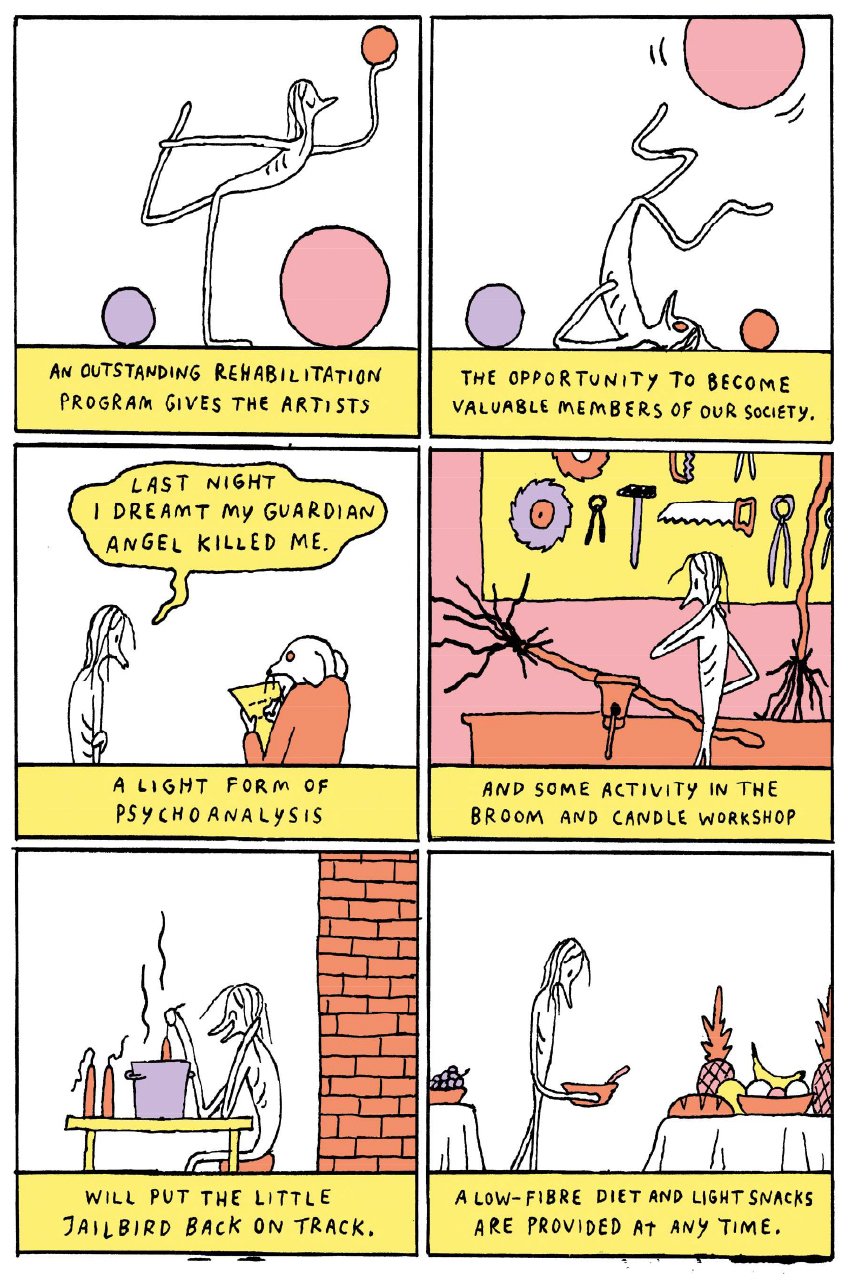 AN OUTSTANDING REHABILITATION
PROGRAM GIVES THE ARTISTS
THE OPPORTUNITY TO BECOME
VALUABLE MEMBERS OF OUR SOCIETY.
LAST NIGHT
I DREAMT MY GUARDIAN
ANGEL KILLED ME.
A LIGHT FORM OF
PSYCHOANALYSIS
AND SOME ACTIVITY IN THE
BROOM AND CANDLE WORKSHOP
WILL PUT THE LITTLE
JAILBIRD BACK ON TRACK.
A LOW-FIBRE DIET AND LIGHT SNACKS
ARE PROVIDED AT ANY TIME.